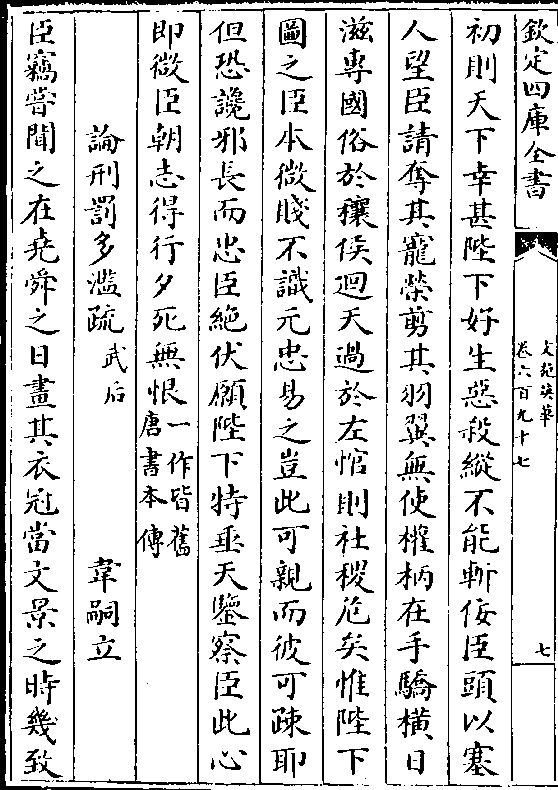 欽定四庫全書
文苑英華
卷六百九十七
七
初則天下幸甚陛下好生惡殺縱不能斬佞臣頭以塞
人望臣請奪其寵榮剪其羽翼無使權柄在手驕橫日
滋專國俗於穰侯迴天過於左悺則社稷危矣惟陛下
圖之臣本微賤不識元忠易之豈此可親而彼可疎耶
但恐讒邪長而忠臣絕伏願陛下特垂天鑒察臣此心
即微臣朝志得行夕死無恨一作皆舊唐書本傳
論刑罰多濫疏武后 韋嗣立
臣竊嘗聞之在堯舜之日畫其衣冠當文景之時幾致